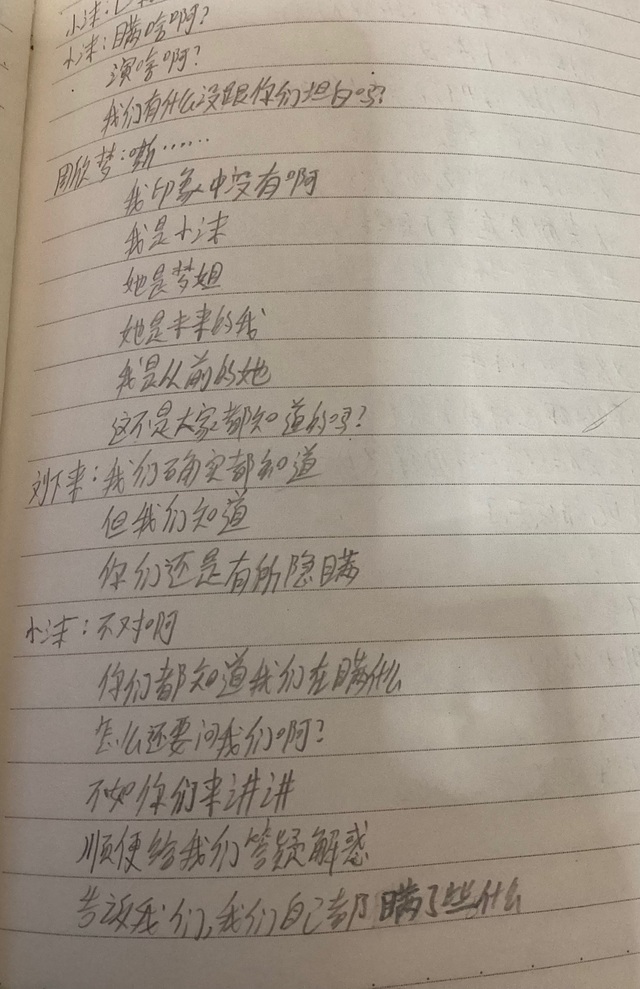 小沫:
小沫:瞒啥啊?
演啥啊?
我们有什么没跟你们坦白吗?
周欣梦:嘶……
我印象中没有啊
我是小沫
她是梦姐
她是未来的我
我是从前的她
这不是大家都知道的吗?
刘下来:我们确实都知道
但我们知道
你们还是有所隐瞒
小沫:不对啊
你们都知道我们在瞒什么
怎么还要问我们啊?
不如你们来讲讲
顺便给我们答疑解惑
告诉我们,我们自己都瞒了些什么